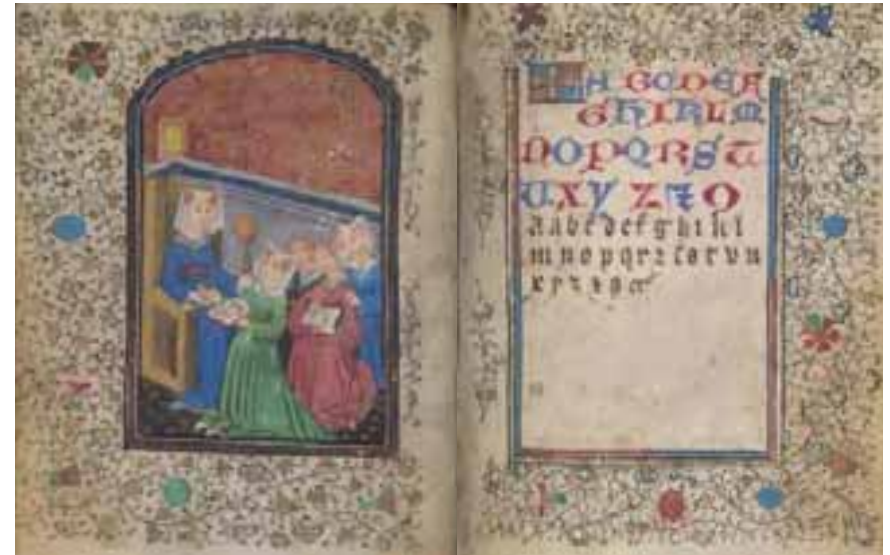 A B C D E F
G H I K L M
N O P Q R S T
U X Y Z ⁊ 9
a a b c d e f g h i k l
m n o p q r ꝛ ſ s t v u
x y z ⁊ 9